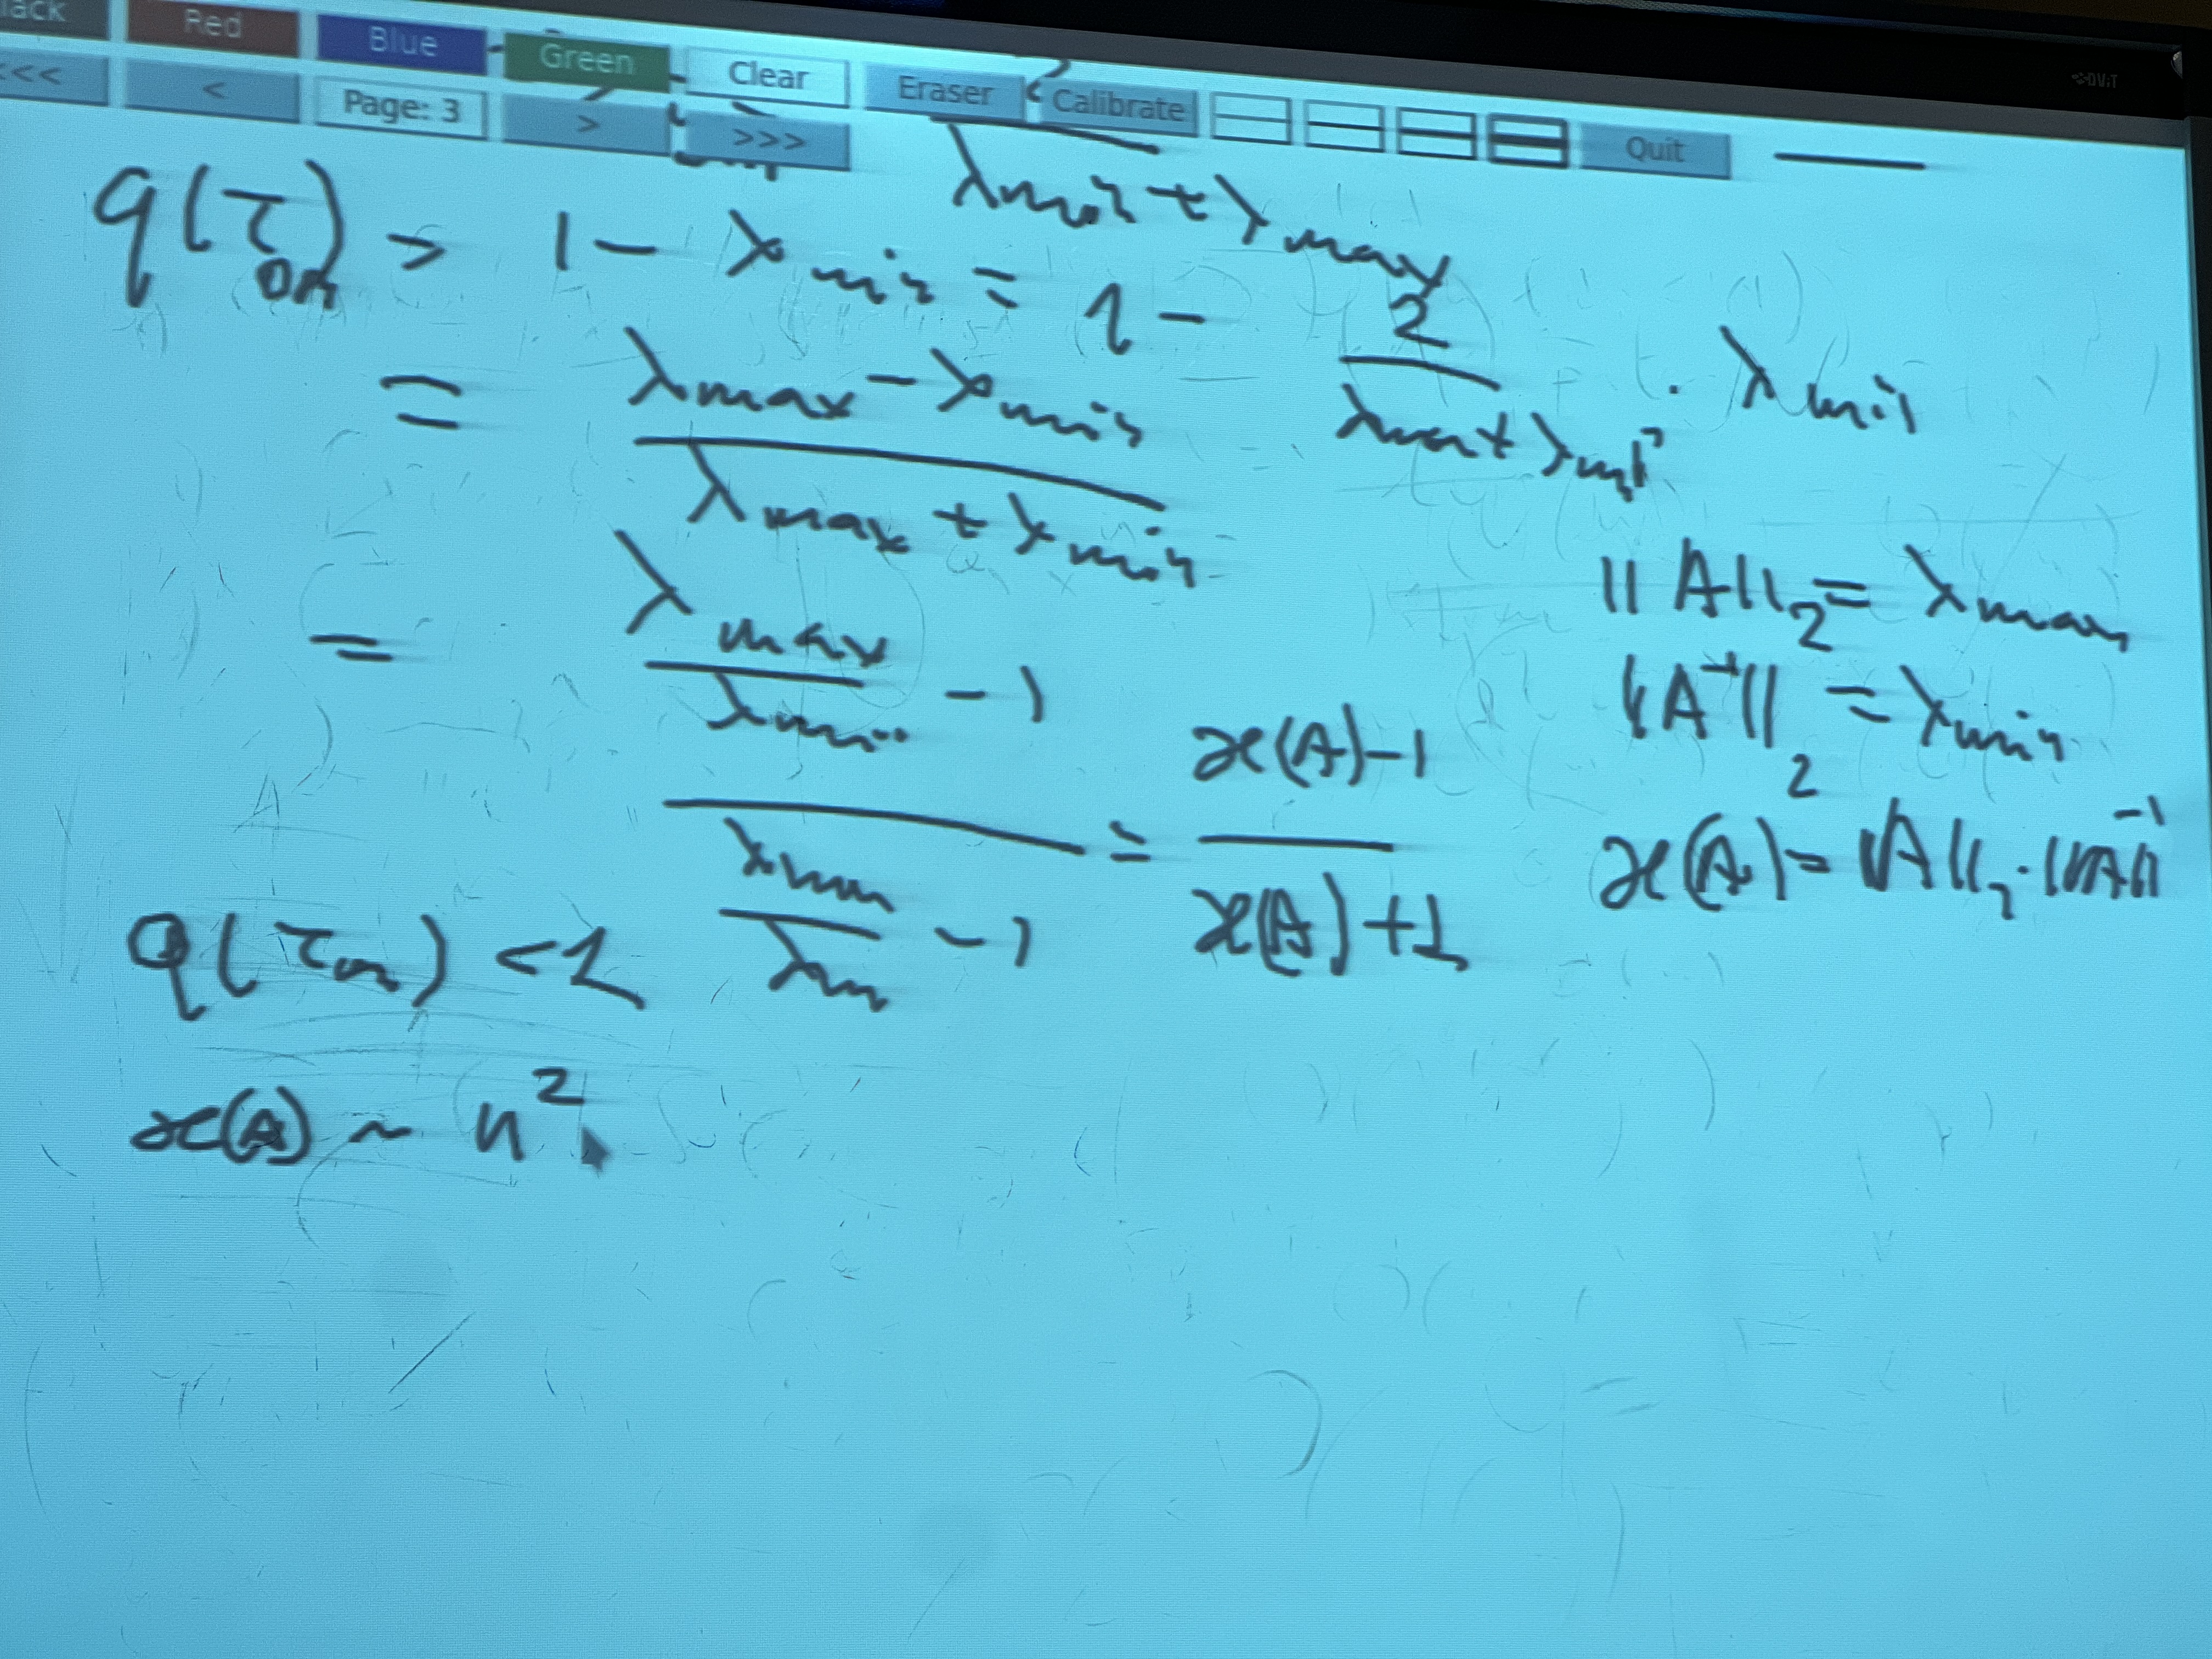 lack Red Blue Green Clear Eraser Calibrate Quit
<<< < Page: 3 > >>>
DViT
λmin + λmax
q(τon) > 1 - λmin = 1 - 2 / (λmax + λmin) · λmin
= (λmax - λmin) / (λmax + λmin)
= (λmax / λmin - 1) / (λmax / λm - 1) = (ϰ(A) - 1) / (ϰ(A) + 1)
||A||₂ = λmax
||A⁻¹||₂ = λmin
ϰ(A) = ||A||₂ · ||A||⁻¹
q(τon) < 1
ϰ(A) ~ n²